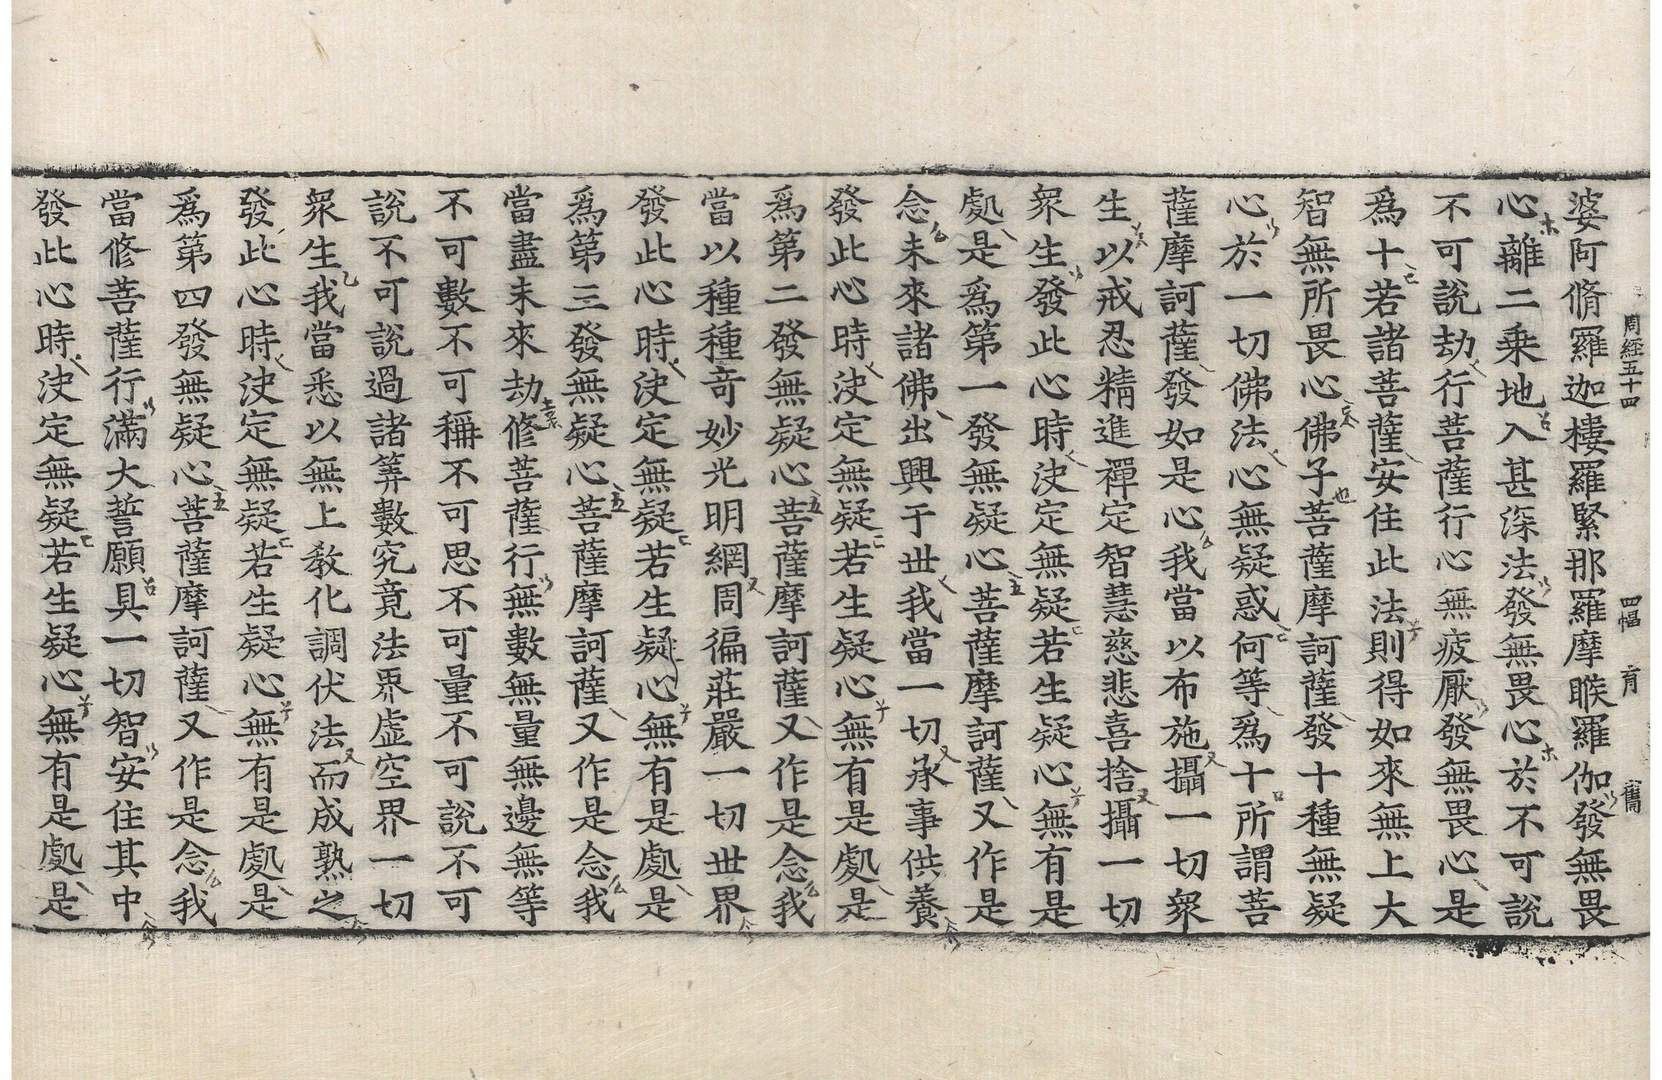 周經五十四　四幅　育
婆阿脩羅迦樓羅緊那羅摩睺羅伽發無畏
心離二乗地入甚深法發無畏心於不可說
不可說劫行菩薩行心無疲厭發無畏心是
爲十若諸菩薩安住此法則得如來無上大
智無所畏心佛子菩薩摩訶薩發十種無疑
心於一切佛法心無疑惑何等爲十所謂菩
薩摩訶薩發如是心我當以布施攝一切衆
生以戒忍精進禪定智慧慈悲喜捨攝一切
衆生發此心時決定無疑若生疑心無有是
處是爲第一發無疑心菩薩摩訶薩又作是
念未來諸佛出興于世我當一切承事供養
發此心時決定無疑若生疑心無有是處是
爲第二發無疑心菩薩摩訶薩又作是念我
當以種種奇妙光明網周徧莊嚴一切世界
發此心時決定無疑若生疑心無有是處是
爲第三發無疑心菩薩摩訶薩又作是念我
當盡未來劫修菩薩行無數無量無邊無等
不可數不可稱不可思不可量不可說不可
說不可說過諸筭數究竟法界虛空界一切
衆生我當悉以無上教化調伏法而成熟之
發此心時決定無疑若生疑心無有是處是
爲第四發無疑心菩薩摩訶薩又作是念我
當修菩薩行滿大誓願具一切智安住其中
發此心時決定無疑若生疑心無有是處是